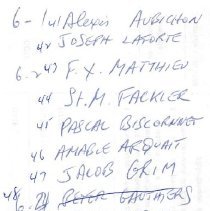 6-1 41 Alexis AUBICHON
42 JOSEPH LAFORTE
6-2 43 F.X. MATTHIEU
44 St. M. FACKLER
45 PASCAL BISCORNNET
46 AMABLE ARQUAIT
47 JACOB GRIM
48 6- PETER GAUTHIERS